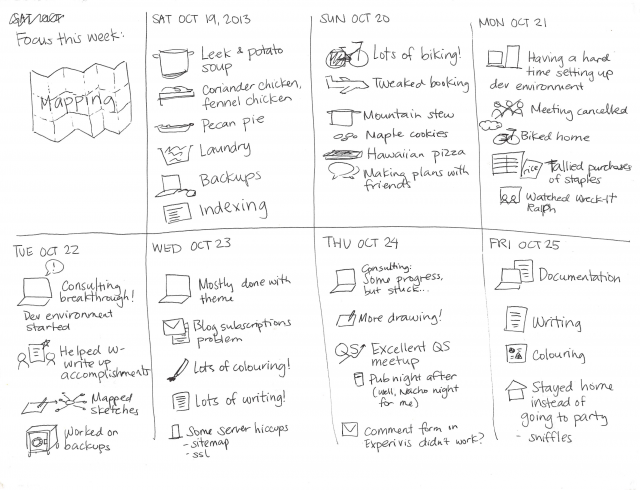 Focus this week:
Mapping
SAT OCT 19, 2013
Leek & potato
soup
Coriander chicken,
fennel chicken
Pecan pie
Laundry
Backups
Indexing
SUN OCT 20
Lots of biking!
Tweaked booking
Mountain stew
Maple cookies
Hawaiian pizza
Making plans with
friends
MON OCT 21
Having a hard
time setting up
dev environment
Meeting cancelled
Biked home
rice
Tallied purchases
of staples
Watched Wreck-It
Ralph
TUE OCT 22
!
Consulting
breakthrough!
Dev environment
started
Helped W-
write up
accomplishments
Mapped
sketches
Worked on
backups
WED OCT 23
Mostly done with
theme
Blog subscriptions
problem
Lots of colouring!
Lots of writing!
Some server hiccups
- sitemap
- ssl
THU OCT 24
Consulting:
Some progress,
but stuck...
More drawing!
QS Excellent QS
meetup
Pub night after
(well, Nacho night
for me)
Comment form on
Experivis didn't work?
FRI OCT 25
Documentation
Writing
Colouring
Stayed home
instead of
going to party
- sniffles